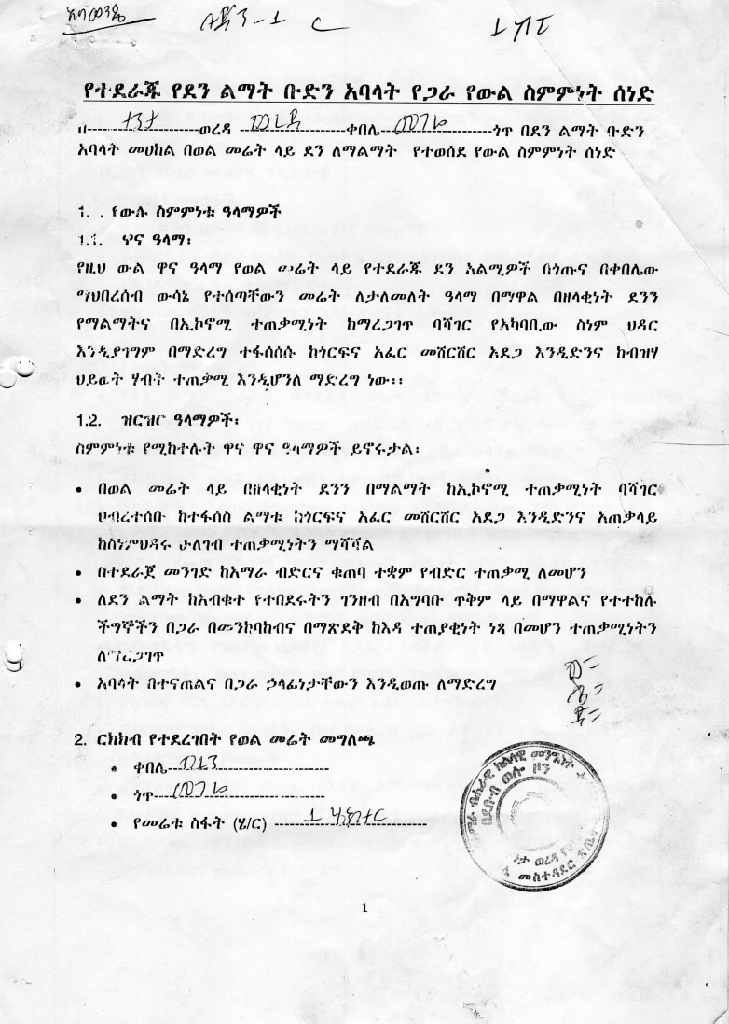 የተደራጁ የደን ልማት ቡድን አባላት የጋራ የውል ስምምነት ሰነድ
በ------------ወረዳ ------------ቀበሌ ------------ጎጥ በደን ልማት ቡድን
አባላት መሀከል በወል መሬት ላይ ደን ለማልማት የተወሰደ የውል ስምምነት ሰነድ
1. የውሉ ስምምነቱ ዓላማዎች
1.1. ዋና ዓላማ፡
የዚህ ውል ዋና ዓላማ የወል መሬት ላይ የተደራጁ ደን አልሚዎች በጎጡና በቀበሌው
ማህበረሰብ ውሳኔ የተሰጣቸውን መሬት ለታለመለት ዓላማ በማዋል በዘላቂነት ደንን
የማልማትና በኢኮኖሚ ተጠቃሚነት ከማረጋገጥ ባሻገር የአካባቢው ስነም ህዳር
እንዲያገግም በማድረግ ተፋሰሰሱ ከጎርፍና አፈር መሸርሸር አደጋ እንዲድንና ከብዝሃ
ህይወት ሃብት ተጠቃሚ እንዲሆንለ ማድረግ ነው፡፡
1.2. ዝርዝር ዓላማዎች፡
ስምምነቱ የሚከተሉት ዋና ዋና ዓላማዎች ይኖሩታል፡
• በወል መሬት ላይ በዘላቂነት ደንን በማልማት ከኢኮኖሚ ተጠቃሚነት ባሻገር
ህብረተሰቡ ከተፋሰስ ልማቱ ከጎርፍና አፈር መሸርሸር አደጋ እንዲድንና አጠቃላይ
ከስነምህዳሩ ሁለገብ ተጠቃሚነትን ማሻሻል
• በተደራጀ መንገድ ከአማራ ብድርና ቁጠባ ተቋም የብድር ተጠቃሚ ለመሆን
• ለደን ልማት ከአብቁተ የተበደሩትን ገንዘብ በአግባቡ ጥቅም ላይ በማዋልና የተተከሉ
ችግኞችን በጋራ በመንከባከብና በማጽደቅ ከእዳ ተጠያቂነት ነጻ በመሆን ተጠቃሚነትን
ለማረጋገጥ
• አባላት በተናጠልና በጋራ ኃላፊነታቸውን እንዲወጡ ለማድረግ
2. ርክክብ የተደረገበት የወል መሬት መግለጫ
• ቀበሌ------------
• ጎጥ------------
• የመሬቱ ስፋት (ሄ/ር) ------1 ሄክታር------
1